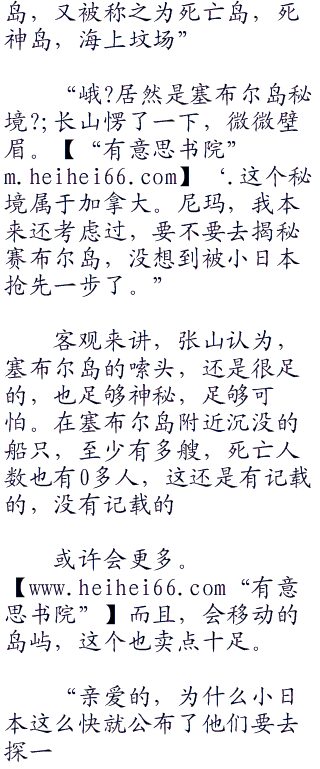 岛，又被称之为死亡岛，死
神岛，海上坟场”
“峨?居然是塞布尔岛秘
境?;长山愣了一下，微微壁
眉。【“有意思书院”
m.heihei66.com】‘.这个秘
境属于加拿大。尼玛，我本
来还考虑过，要不要去揭秘
赛布尔岛，没想到被小日本
抢先一步了。”
客观来讲，张山认为，
塞布尔岛的嗦头，还是很足
的，也足够神秘，足够可
怕。在塞布尔岛附近沉没的
船只，至少有多艘，死亡人
数也有0多人，这还是有记载
的，没有记载的
或许会更多。
【www.heihei66.com“有意
思书院”】而且，会移动的
岛屿，这个也卖点十足。
“亲爱的，为什么小日
本这么快就公布了他们要去
探一